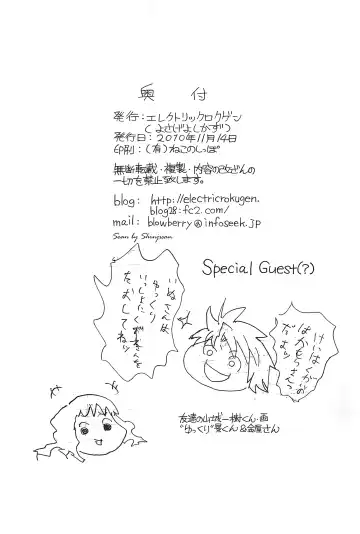 奥付
発行：エレクトリックロクゲン
(よさげよしかず)
発行日：2010年11月14日
印刷：(有)ねこのしっぽ
無断転載・複製・内容の改ざんの
一切を禁止致します。
blog: http://electricrokugen.
blog28.fc2.com/
mail: blowberry@infoseek.jp
Scan by Shinjisan
Special Guest(?)
いぬさんは
ゆっくり
いっしょに
たおしてねッ
だよッ
友達の山城一樹くん・画
"ゆっくり"晃くん&金屋さん